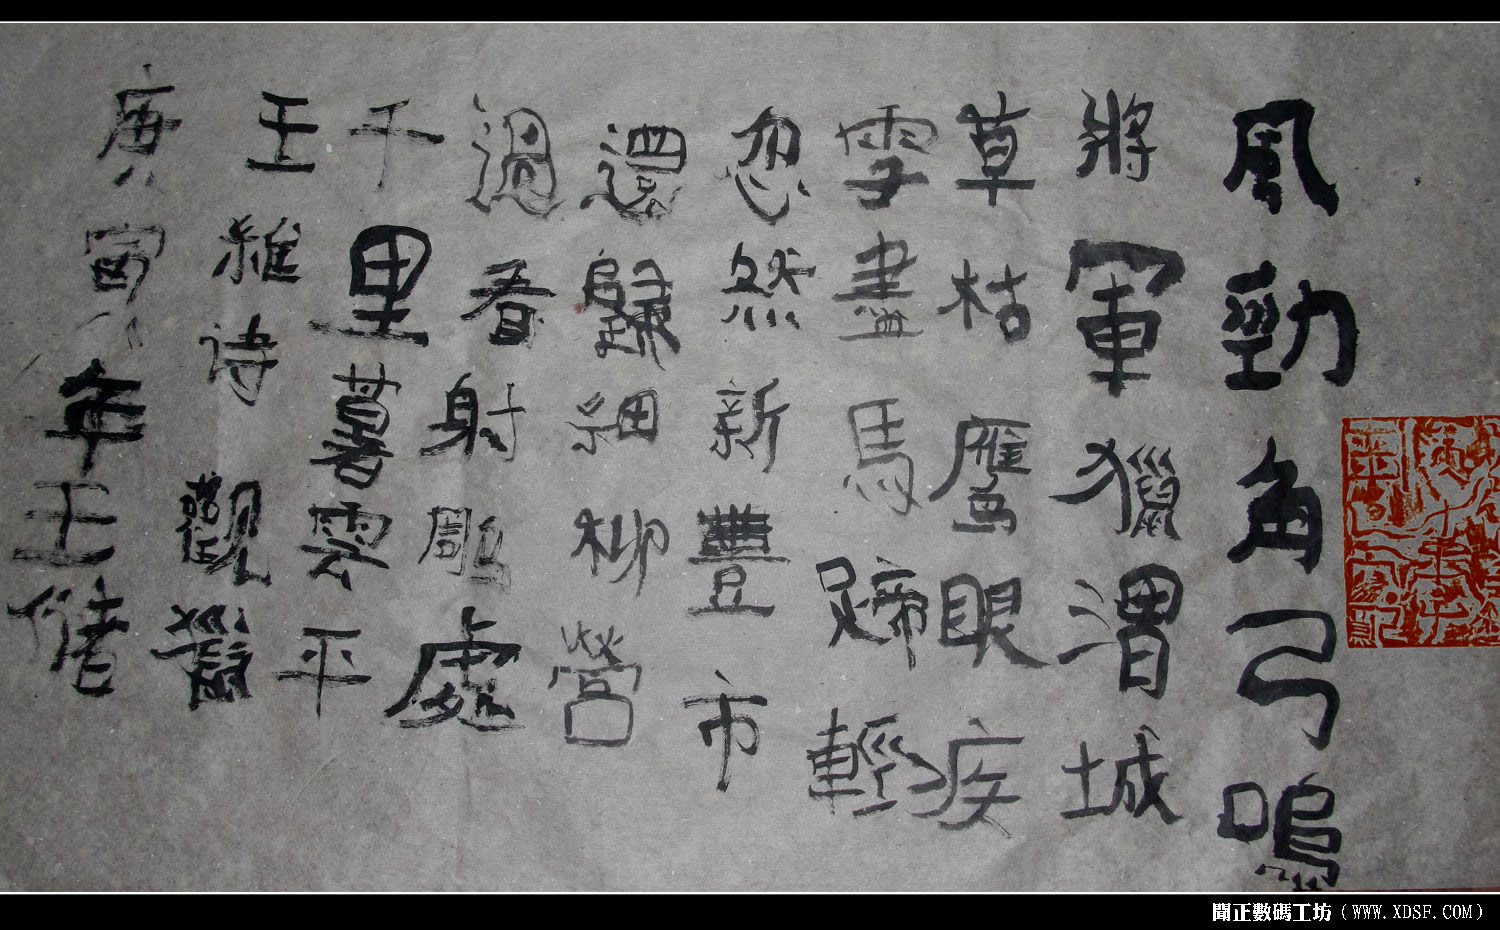 風勁角弓鳴
將軍獵渭城
草枯鹰眼疾
雪盡馬蹄輕
忽然新豐市
還歸細柳營
過看射雕處
千里暮雲平
王維诗 觀獵
庚寅年王偆
聞正數碼工坊（WWW.XDSF.COM）